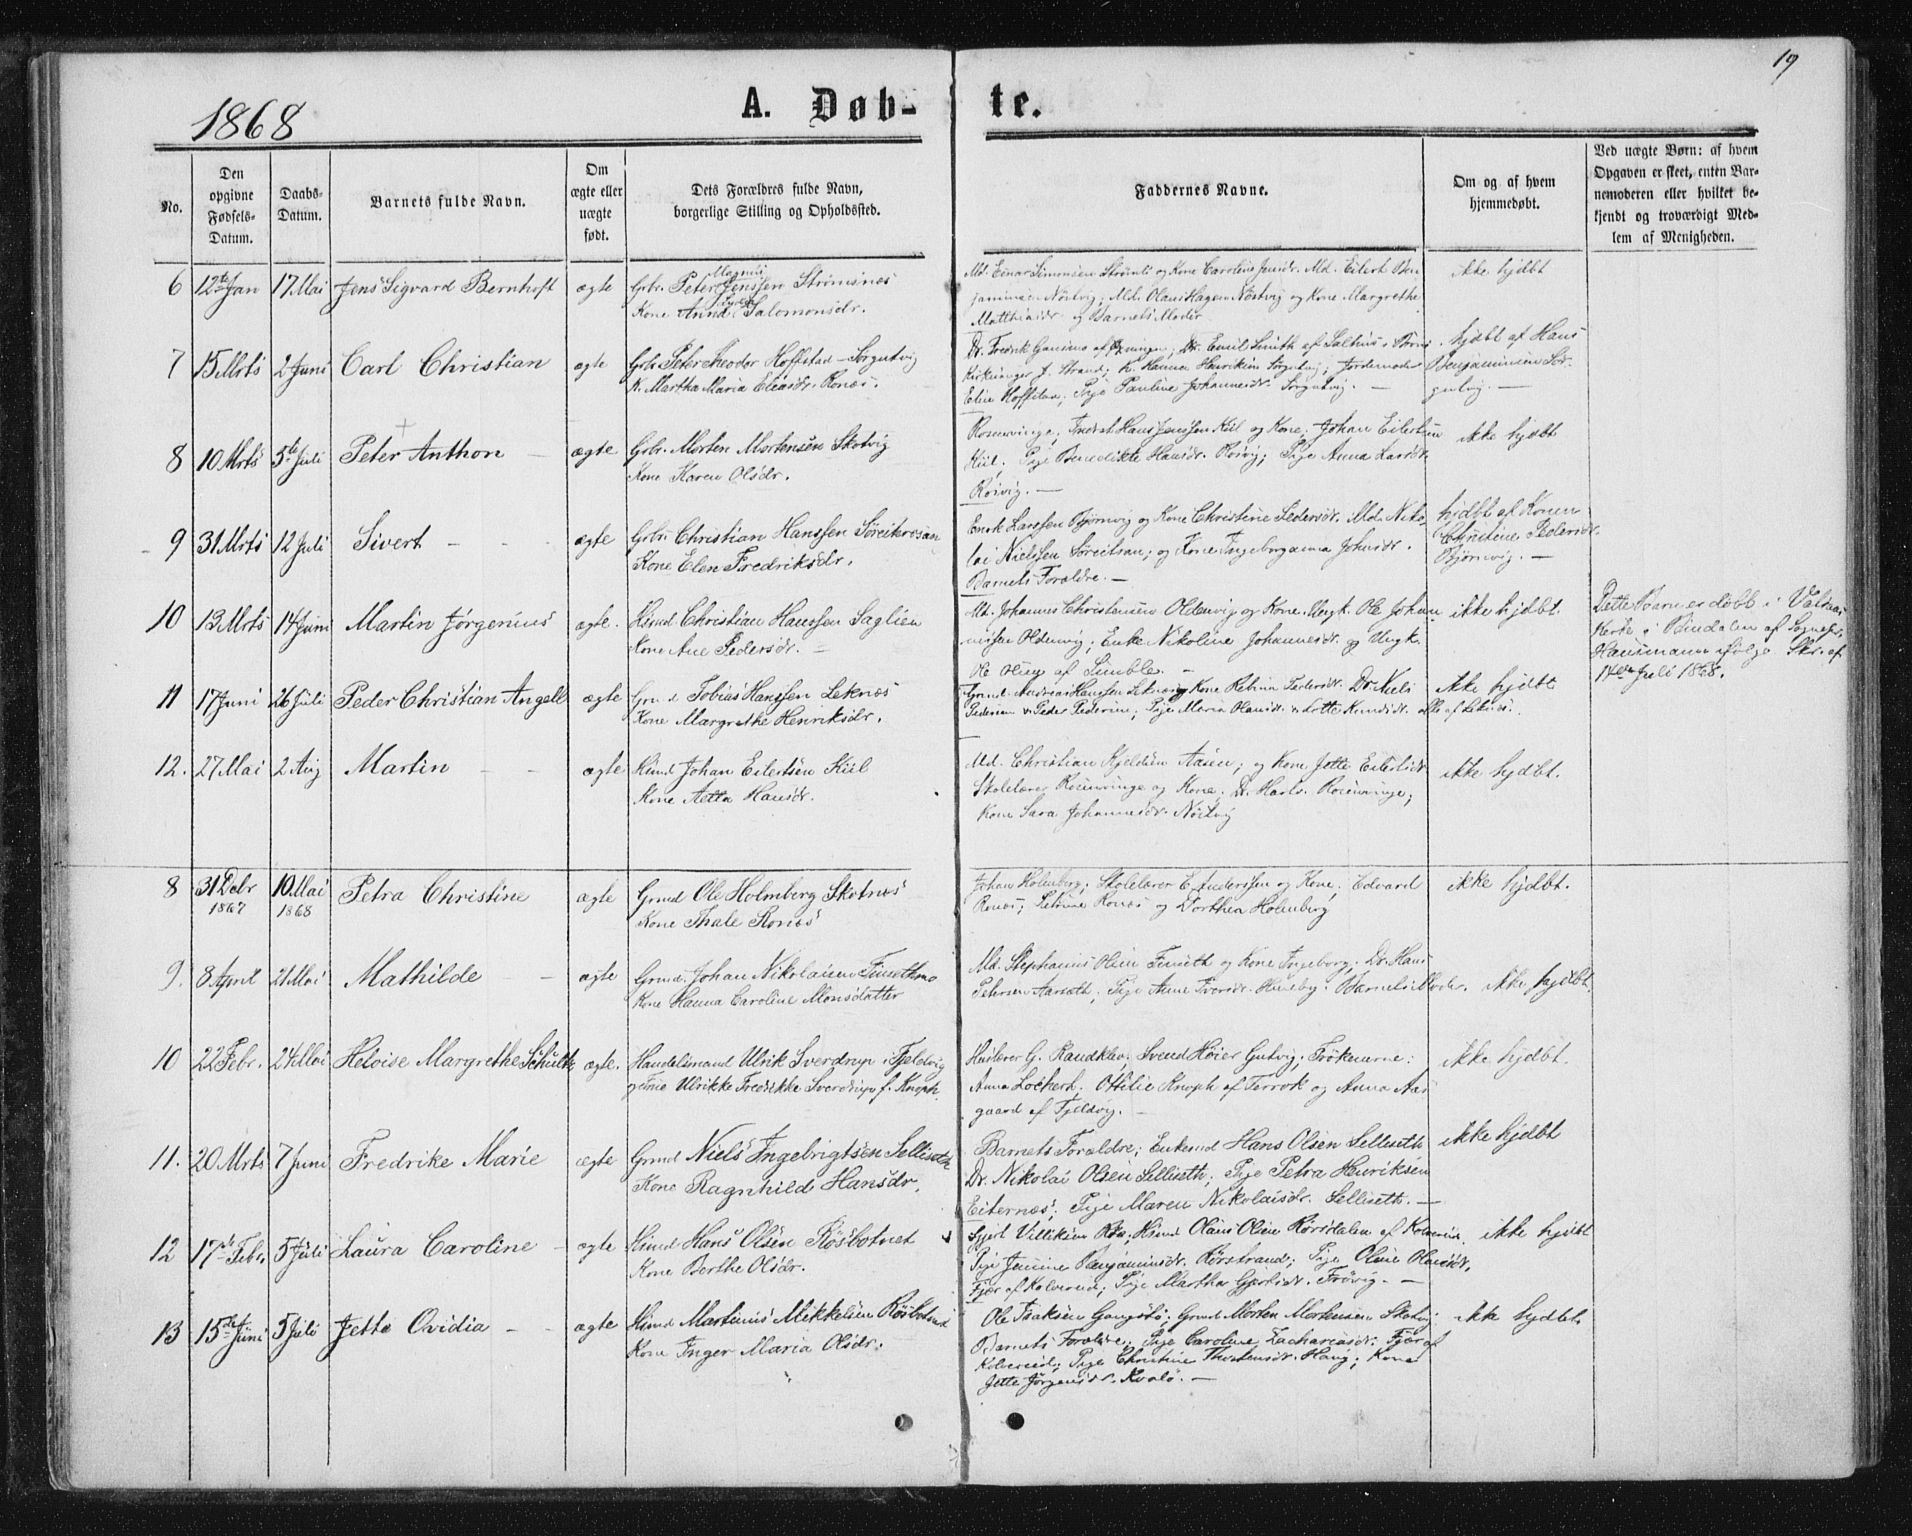 19
1868
A. Døb-
te.
No.
Den opgivne Fødsels-Datum.
Daabs-Datum.
Barnets fulde Navn.
Om ægte eller uægte født.
Dets Forældres fulde Navn, borgerlige Stilling og Opholdssted.
Faddernes Navne.
Om og af hvem hjemmedøbt.
Ved uægte Børn: af hvem
Opgaven er skeet, enten Bar-
nemoderen eller hvilket be-
kjendt og troværdigt Med-
lem af Menigheden.
6 12te Jan 17 Mai Jens Sigvard Bernhoft ægte Grbr. Peter Magnus Jenssen Strømsnes
Kone Anna Salomonsdr.
Md. Einar Simonsen Strømli og Kone Caroline Jensdr. Md. Eilert Ben
jaminsen Nøstvig; Md. Olaus Hagen Nøstvig og Kone Margrethe
Matthiasdr og Barnets Moder
ikke hjdbt
7 15 Mrts 2 Juni Carl Christian ægte Grbr. Peter Theodor Hoffstad - Sørgutvig
K. Martha Maria Eliasdr. Ronæs.
Dr. Fredrik; Dr. Emil Smith af
Kirkesanger J. Strand; K. Hanna Henriksen Sørgutvig; Jordemoder
Elin Hoffstad; Pige Pauline Johannesdr. Sørgutvig. —
hjdbt af Hans
Benjaminsen Sør-
gutvig. —
8 10 Mrts 5te Juli Peter Anthon — ægte Grbr. Morten Mortensen Skotvig
Kone Karen Olsdr.
Rosenvinge; Hans Jenssen Kiil og Kone, Johan Eilertsen
Kiil; Pige Benedikte Hansdr. Roivig; Pige Anna Larsdr.
Roivig. —
ikke hjdbt
9 31 Mrts 12 Juli Sivert - - - ægte Grbr. Christian Hanssen
Kone Elen Fredriksdr.
Enok Larssen Bjørnvig og Kone Christine Pedersdr. Md. Niko-
lai Nielssen; og Kone Ingeborganna Johnsdr.
Barnets Forældre. —
hjdbt af Konen
Christine Pedersdr.
Bjørnvig. —
10 13 Mrts 14 Juni Martin Jørgenius ægte. Husmd Christian Hanssen Saglien
Kone Ane Pedersdr. —
Md. Johannes Christensen Oldervig og Kone. Ungk. Ole Johan
nessen Oldervig; Enke Nikoline Johannesdr. og Ungk.
Ole Olsen af Simble. —
ikke hjdbt.
Dette Barn er døbt i
Kirke i Bindalen af Sognepr.
Hausmann ifølge Skr. af
Juli 1868.
11 17 Juni 26 Juli Peder Christian Angell ægte Grmd Tobias Hanssen Leknes
Kone Margrethe Henriksdr.
Grmd. Andreas Hanssen Leknes og Kone Petrina Pedersdr. Dr. Niels
Pedersen & Peder Pedersen; Pige Maria Olausdr. & Lotte Knudsdr. alle af Leknes.
ikke hjdbt
12. 27 Mai 2 Aug Martin - - ægte Husmd Johan Eilertsen Kiil
Kone Aetta Hansdr.
Md. Christian Kjeldsen Aasen; og Kone Jette Eilertsdr.
Skolelærer Rosenvinge og Kone; Dr. Rosenvinge;
Kone Sara Johannesdr. Nøstvig
ikke hjdbt.
8 31 Debr 1867 10 Mai 1868 Petra Christine ægte Grmd Ole Holmberg Skotnes
Kone Thale Ronæs
Johan Holmberg; Skolelærer E. Anderssen og Kone; Edvard
Ronæs; Petrine Ronæs og Dorthea Holmberg
ikke hjdbt.
9. 8 April 21 Mai Mathilde — ægte Grmd. Johan Nikolaisen Finsethmo
Kone Hanna Caroline Monsdatter
Md. Stephanus Olsen Finseth og Kone Ingeborg; Dr. Hans
Petersen Aarseth; Pige Anne Iversdr. Huseby. Barnets Moder.
ikke hjdbt.
10 22 Febr. 24 Mai Heloise Margrethe Schultz ægte. Handelsmand Ulrik Sverdrup i Fjeldvig
og Frue Ulrikke Fredrikke Sverdrup f. Knoph.
Huslærer G. Randklev; Svend Høier Gutvig; Frøknerne:
Anna Lockert. Ottilie Knoph af Terrok og Anna Aas-
gaard af Fjeldvig. —
ikke hjdbt.
11. 20 Mrts 7 Juni Fredrike Marie ægte Grmd Niels Ingebrigtsen Selliseth
Kone Ragnhild Hansdr.
Barnets Forældre; Enkemd Hans Olsen Selliseth
Dr. Nikolai Olsen Selliseth; Pige Petra Henriksen
Eiternes; Pige Maren Nikolaisdr. Selliseth. —
ikke hjdbt
12 17de Febr. 5 Juli Laura Caroline - ægte Husmd Hans Olsen Røsbotnet
Kone Berthe Olsdr.
Gjert Villiksen; Husmd Olaus Olsen af Kolvereid.
Pige Jensine Benjaminsdr. Rørstrand; Pige Oline Olausdr.
Fjær af Kolvereid; Pige Martha Gjertsdr. Frøvig. —
ikke hjdbt
13 15de Juni 5 Juli Jette Ovidia - - ægte Husmd Martinus Mikkelsen Røsbotnet
Kone Inger Maria Olsdr.
Ole Isaksen Gangstø; Grmd Morten Mortensen Skotvig
Barnets Forældre; Pige Caroline Zachariasdr. Fjær af
Kolvereid; Pige Christine Haug; Kone
Jette Jørgensdr. Kvalø. —
ikke hjdbt.